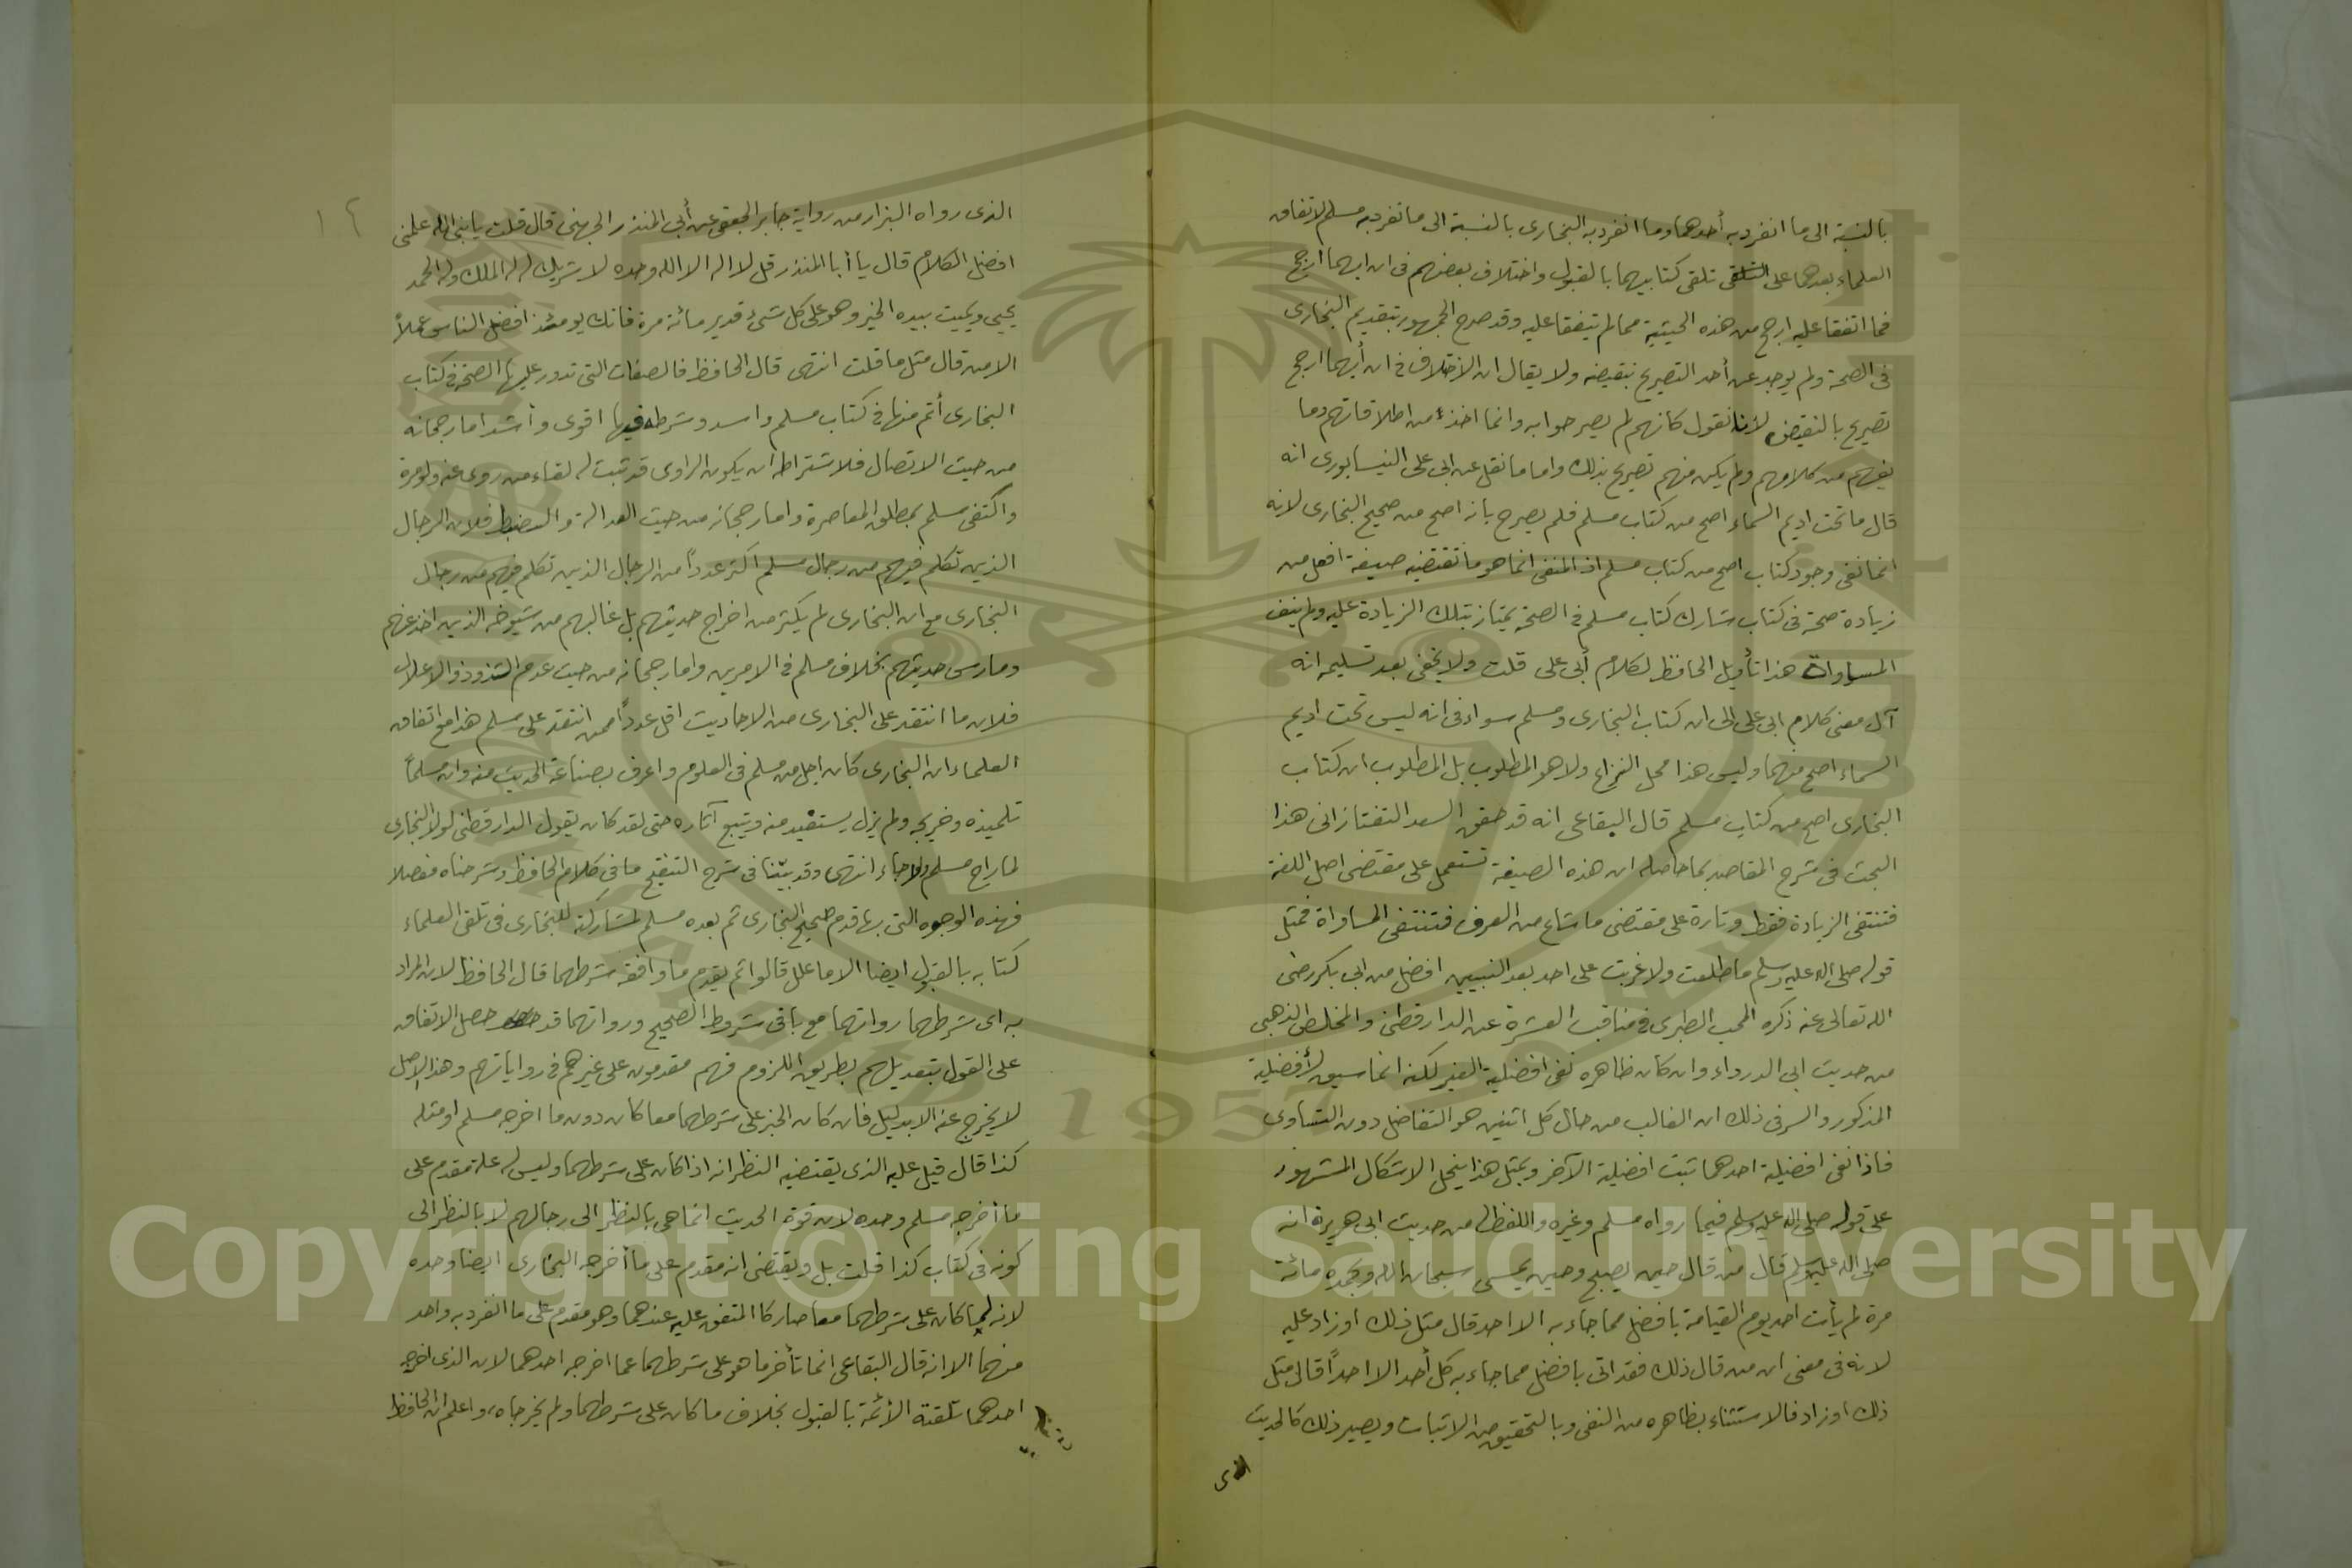 بالنسبة الى ما انفرد به أحدهما وما انفرد به البخارى بالنسبة الى ما تفرد به مسلم لاتفاق
العلماء بعدهما على التلقى تلقى كتابيهما بالقبول واختلاف بعضهم فى ان ايهما أرجح
فما اتفقا عليه ارجح من هذه الحيثية مما لم يتفقا عليه وقد صرح الجمهور بتقديم البخارى
فى الصحة ولم يوجد عن أحد التصريح بنقيضه ولا يقال ان الاختلاف فى ان أيهما ارجح
تصريح بالنقيض لأنا نقول كانهم لم يصرحوا به وانما اخذ من اطلاقاتهم وما
يفهم من كلامهم ولم يكن منهم تصريح بذلك واما ما نقل عن ابى على النيسابورى انه
قال ما تحت اديم السماء اصح من كتاب مسلم فلم يصرح بانه اصح من صحيح البخارى لانه
انما نفى وجود كتاب اصح من كتاب مسلم اذ المنفى انما هو ما تقتضيه صيغة افعل من
زيادة صحة فى كتاب شارك كتاب مسلم فى الصحة يمتاز بتلك الزيادة عليه ولم ينف
المساواة هذا تأويل الحافظ لكلام أبى على قلت ولا يخفى بعد تسليمه انه
آل معنى كلام ابى على الى ان كتاب البخارى ومسلم سواء فى انه ليس تحت اديم
السماء اصح منهما وليس هذا محل النزاع ولا هو المطلوب بل المطلوب ان كتاب
البخارى اصح من كتاب مسلم قال البقاعى انه قد حقق السعد التفتازانى هذا
البحث فى شرح المقاصد بما حاصله ان هذه الصيغة تستعمل على مقتضى اصل اللغة
فتنتفى الزيادة فقط وتارة على مقتضى ما شاع من العرف فتنتفى المساواة فمثل
قوله صلى الله عليه وسلم ما طلعت ولا غربت على احد بعد النبيين افضل من ابى بكر رضى
الله تعالى عنه ذكره المحب الطبرى فى مناقب العشرة عن الدارقطنى والمخلص الذهبى
من حديث ابى الدرداء وان كان ظاهره نفى افضلية الغير لكنه انما سيق لأفضلية
المذكور والسر فى ذلك ان الغالب من حال كل اثنين هو التفاضل دون التساوى
فاذا نفى افضلية احدهما ثبت افضلية الآخر وبمثل هذا ينحل الاشكال المشهور
على قوله صلى الله عليه وسلم فيما رواه مسلم وغيره واللفظ له من حديث ابى هريرة انه
صلى الله عليه وسلم قال من قال حين يصبح وحين يمسى سبحان الله وبحمده مائة
مرة لم يأت احد يوم القيامة بافضل مما جاء به الا احد قال مثل ذلك او زاد عليه
لانه فى معنى ان من قال ذلك فقد اتى بافضل مما جاء به كل أحد الا احداً قال مثل
ذلك او زاد فالاستثناء بظاهره من النفى وبالتحقيق من الاثبات ويصير ذلك كالحديث
الذى
١٢
الذى رواه البزار من رواية جابر الجعفى عن أبى المنذر الجهنى قال قلت يا نبى الله علمنى
افضل الكلام قال يا أبا المنذر قل لا اله الا الله وحده لا شريك له له الملك وله الحمد
يحيى ويميت بيده الخير وهو على كل شىء قدير مائة مرة فانك يومئذ افضل الناس عملاً
الا من قال مثل ما قلت انتهى قال الحافظ فالصفات التى تدور عليها الصحة فى كتاب
البخارى أتم منها فى كتاب مسلم واسد وشرطه فيها اقوى وأشد اما رجحانه
من حيث الاتصال فلاشتراطه ان يكون الراوى قد ثبت له لقاء من روى عنه ولو مرة
واكتفى مسلم بمطلق المعاصرة واما رجحانه من حيث العدالة والضبط فلان الرجال
الذين تكلم فيهم من رجال مسلم اكثر عدداً من الرجال الذين تكلم فيهم من رجال
البخارى مع ان البخارى لم يكثر من اخراج حديثهم بل غالبهم من شيوخه الذين اخذ عنهم
ومارس حديثهم بخلاف مسلم فى الامرين واما رجحانه من حيث عدم الشذوذ والاعلال
فلان ما انتقد على البخارى من الاحاديث اقل عدداً مما انتقد على مسلم هذا مع اتفاق
العلماء ان البخارى كان اجل من مسلم فى العلوم واعرف بصناعة الحديث منه وان مسلماً
تلميذه وخريجه ولم يزل يستفيد منه ويتبع آثاره حتى لقد كان يقول الدارقطنى لولا البخارى
لما راح مسلم ولا جاء انتهى وقد بيّنا فى شرح التنقيح ما فى كلام الحافظ وشرحناه مفصلا
فهذه الوجوه التى بها قدم صحيح البخارى ثم بعده مسلم لمشاركته للبخارى فى تلقى العلماء
كتابه بالقبول ايضا الا ما علل قالوا ثم يقدم ما وافقه شرطهما قال الحافظ لان المراد
به اى شرطهما رواتهما مع باقى شروط الصحيح ورواتهما قد حصل الاتفاق
على القول بتعديلهم بطريق اللزوم فهم مقدمون على غيرهم فى رواياتهم وهذا الاصل
لا يخرج عنه الا بدليل فان كان الخبر على شرطهما معا كان دون ما اخرجه مسلم او مثله
كذا قال قيل عليه الذى يقتضيه النظر انه اذا كان على شرطهما وليس له علة مقدم على
ما أخرجه مسلم وحده لان قوة الحديث انما هى بالنظر الى رجالهم لا بالنظر الى
كونه فى كتاب كذا قلت بل ويقتضى انه مقدم على ما أخرجه البخارى ايضا وحده
لانه لما كان على شرطهما معا صار كالمتفق عليه عندهما وهو مقدم على ما انفرد به واحد
منهما الا انه قال البقاعى انما تأخر ما هو على شرطهما عما اخرجه احدهما لان الذى اخرجه
احدهما تلقته الأئمة بالقبول بخلاف ما كان على شرطهما ولم يخرجاه واعلم ان الحافظ
Copyright © King Saud University
1957